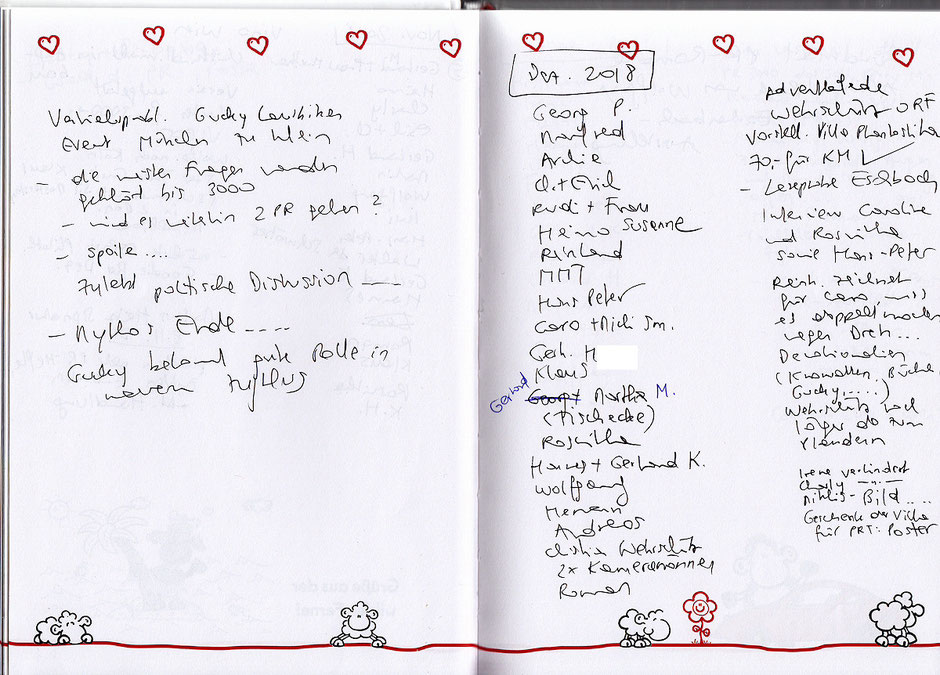 Event München zu klein
die meisten Fragen werden
geklärt bis 3000
- wird es weiterhin 2 PR geben?
- spoile....
zuletzt politische Diskussion
- Mythos Ende....
Gucky bekommt gute Rolle in
neuem Zyklus
Dez. 2018
Georg P.
Manfred
Archie
Ch. + Emil
Rudi + Frau
Heino Susanne
Reinhard
MMT
Hans Peter
Caro + Michi Sm.
Gerh. H
Klaus
Gerhard Martha M.
(Tischecke)
Roswitha
Hannes + Gerhard K.
Wolfgang
Hermann
Andreas
Christian Wehrschütz
2x Kameramänner
Roman
Wehrschütz ORF
Vorstell. Villa Phantastika
70,- für KM
- Leseprobe Eschbach
Interview Caroline
und Roswitha
sowie Hans-Peter
Reinh. zeichnet
für Caro, muss
es doppelt machen
wegen Dreh...
Devotionalien
(Krawatten, Bücher,
Gucky.....)
Wehrschütz noch
länger da zum
Plaudern
Irene verhindert
Charly -"-
Bild....
Geschenk der Villa
für PRT: Poster